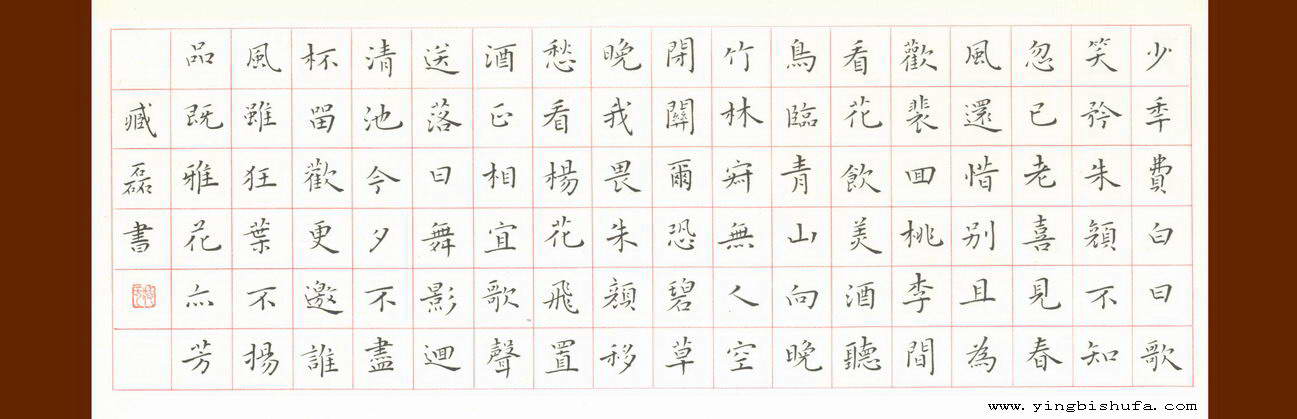 少秊費白日歌
笑矜朱顏不知
忽已老喜見春
風還惜別且為
歡裴回桃李間
看花飲美酒聽
鳥臨青山向晚
竹林寂無人空
閉關爾恐碧草
晚我畏朱顏移
愁看楊花飛置
酒正相宜歌聲
送落日舞影迴
清池今夕不盡
杯留歡更邀誰
風雖狂葉不揚
品既雅花亦芳
臧磊書
www.yingbishufa.com